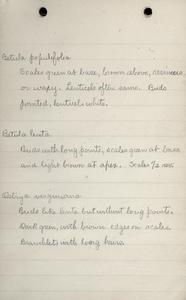 Betula populifolia
Scales green at base, brown above, resinous
or waxy. Lenticels often same. Buds
pointed,
Betula lenta
Buds with long points, scales green at base
and light brown at apex. Scales 1/2
Ostrya virginiana
Buds like lenta but without long points.
Dark green, with brown edges on scales.
Branchlets with long hairs